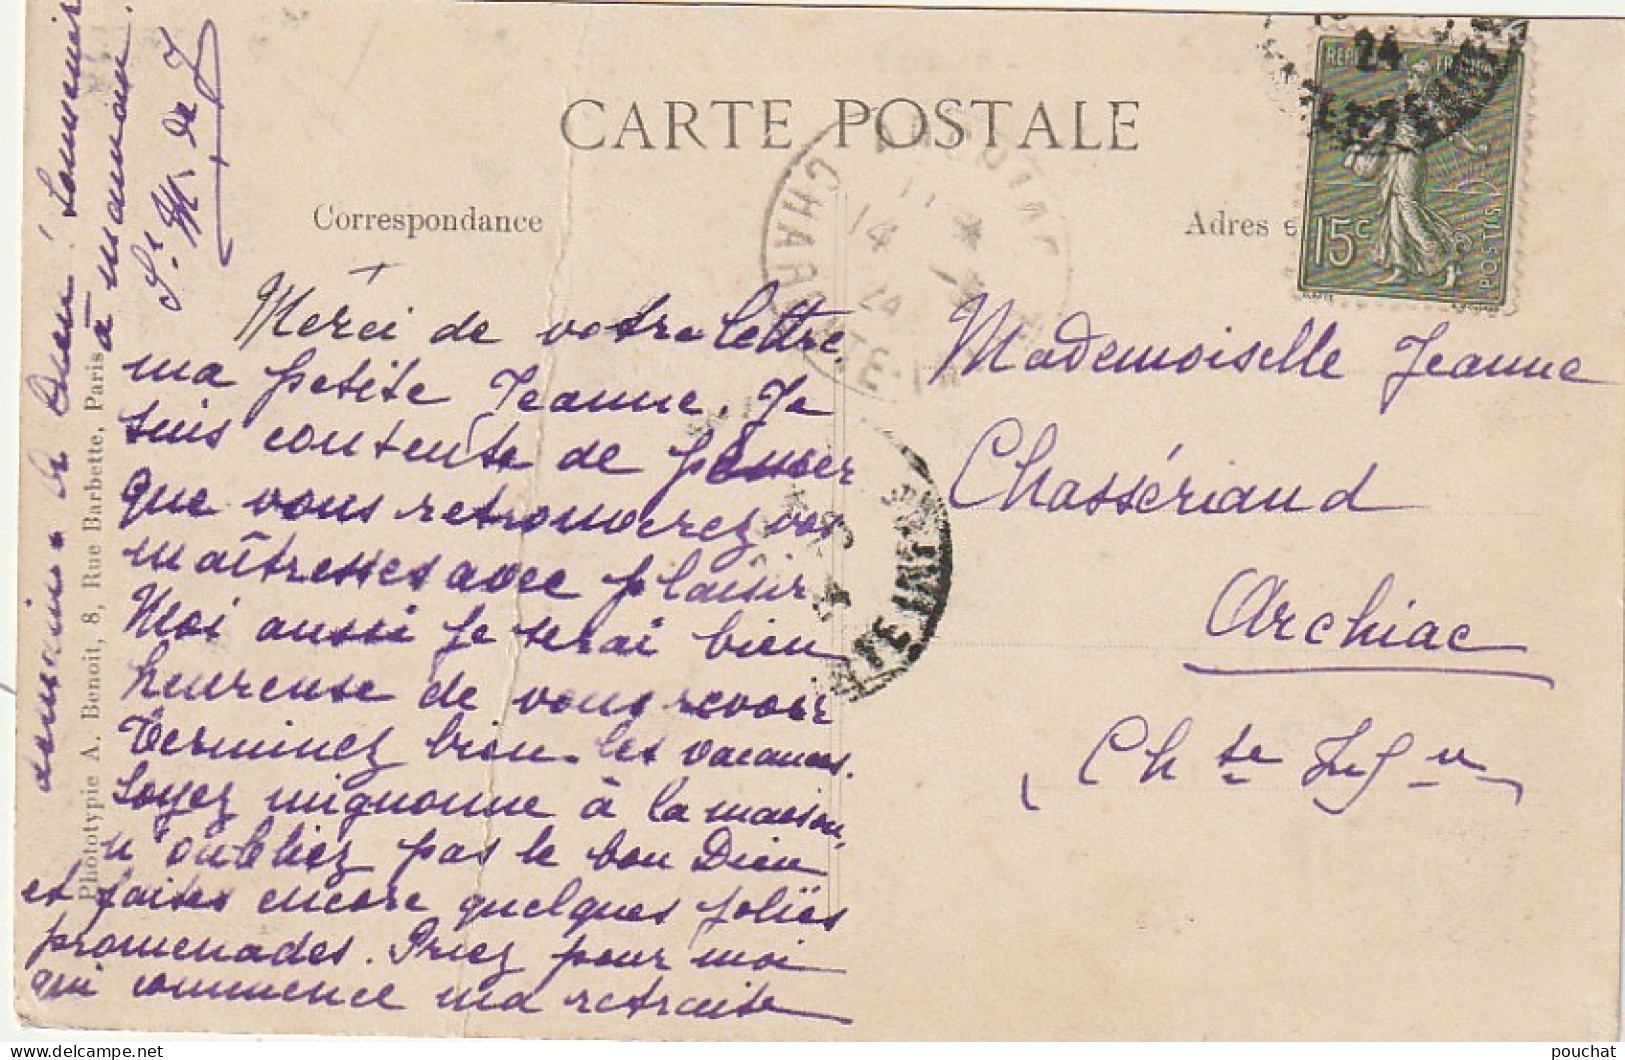 CARTE POSTALE
Correspondance
Adresse
REP FRANÇ
15c
POSTES
24
CHARENTE
14
24
CHARENTE INF
Merci de votre lettre
ma petite Jeanne. Je
suis contente de penser
que vous retrouverez vos
maîtresses avec plaisir
Moi aussi je serai bien
heureuse de vous revoir
Terminez bien les vacances.
Soyez mignonne à la maison,
n'oubliez pas le bon Dieu
et faites encore quelques jolies
promenades. Priez pour moi
qui commence ma retraite
à maman.
Sr. M. de J
Mademoiselle Jeanne
Chassériaud
Archiac
(Chte Infre)
Phototypie A. Benoit, 8, Rue Barbette, Paris
pouchat